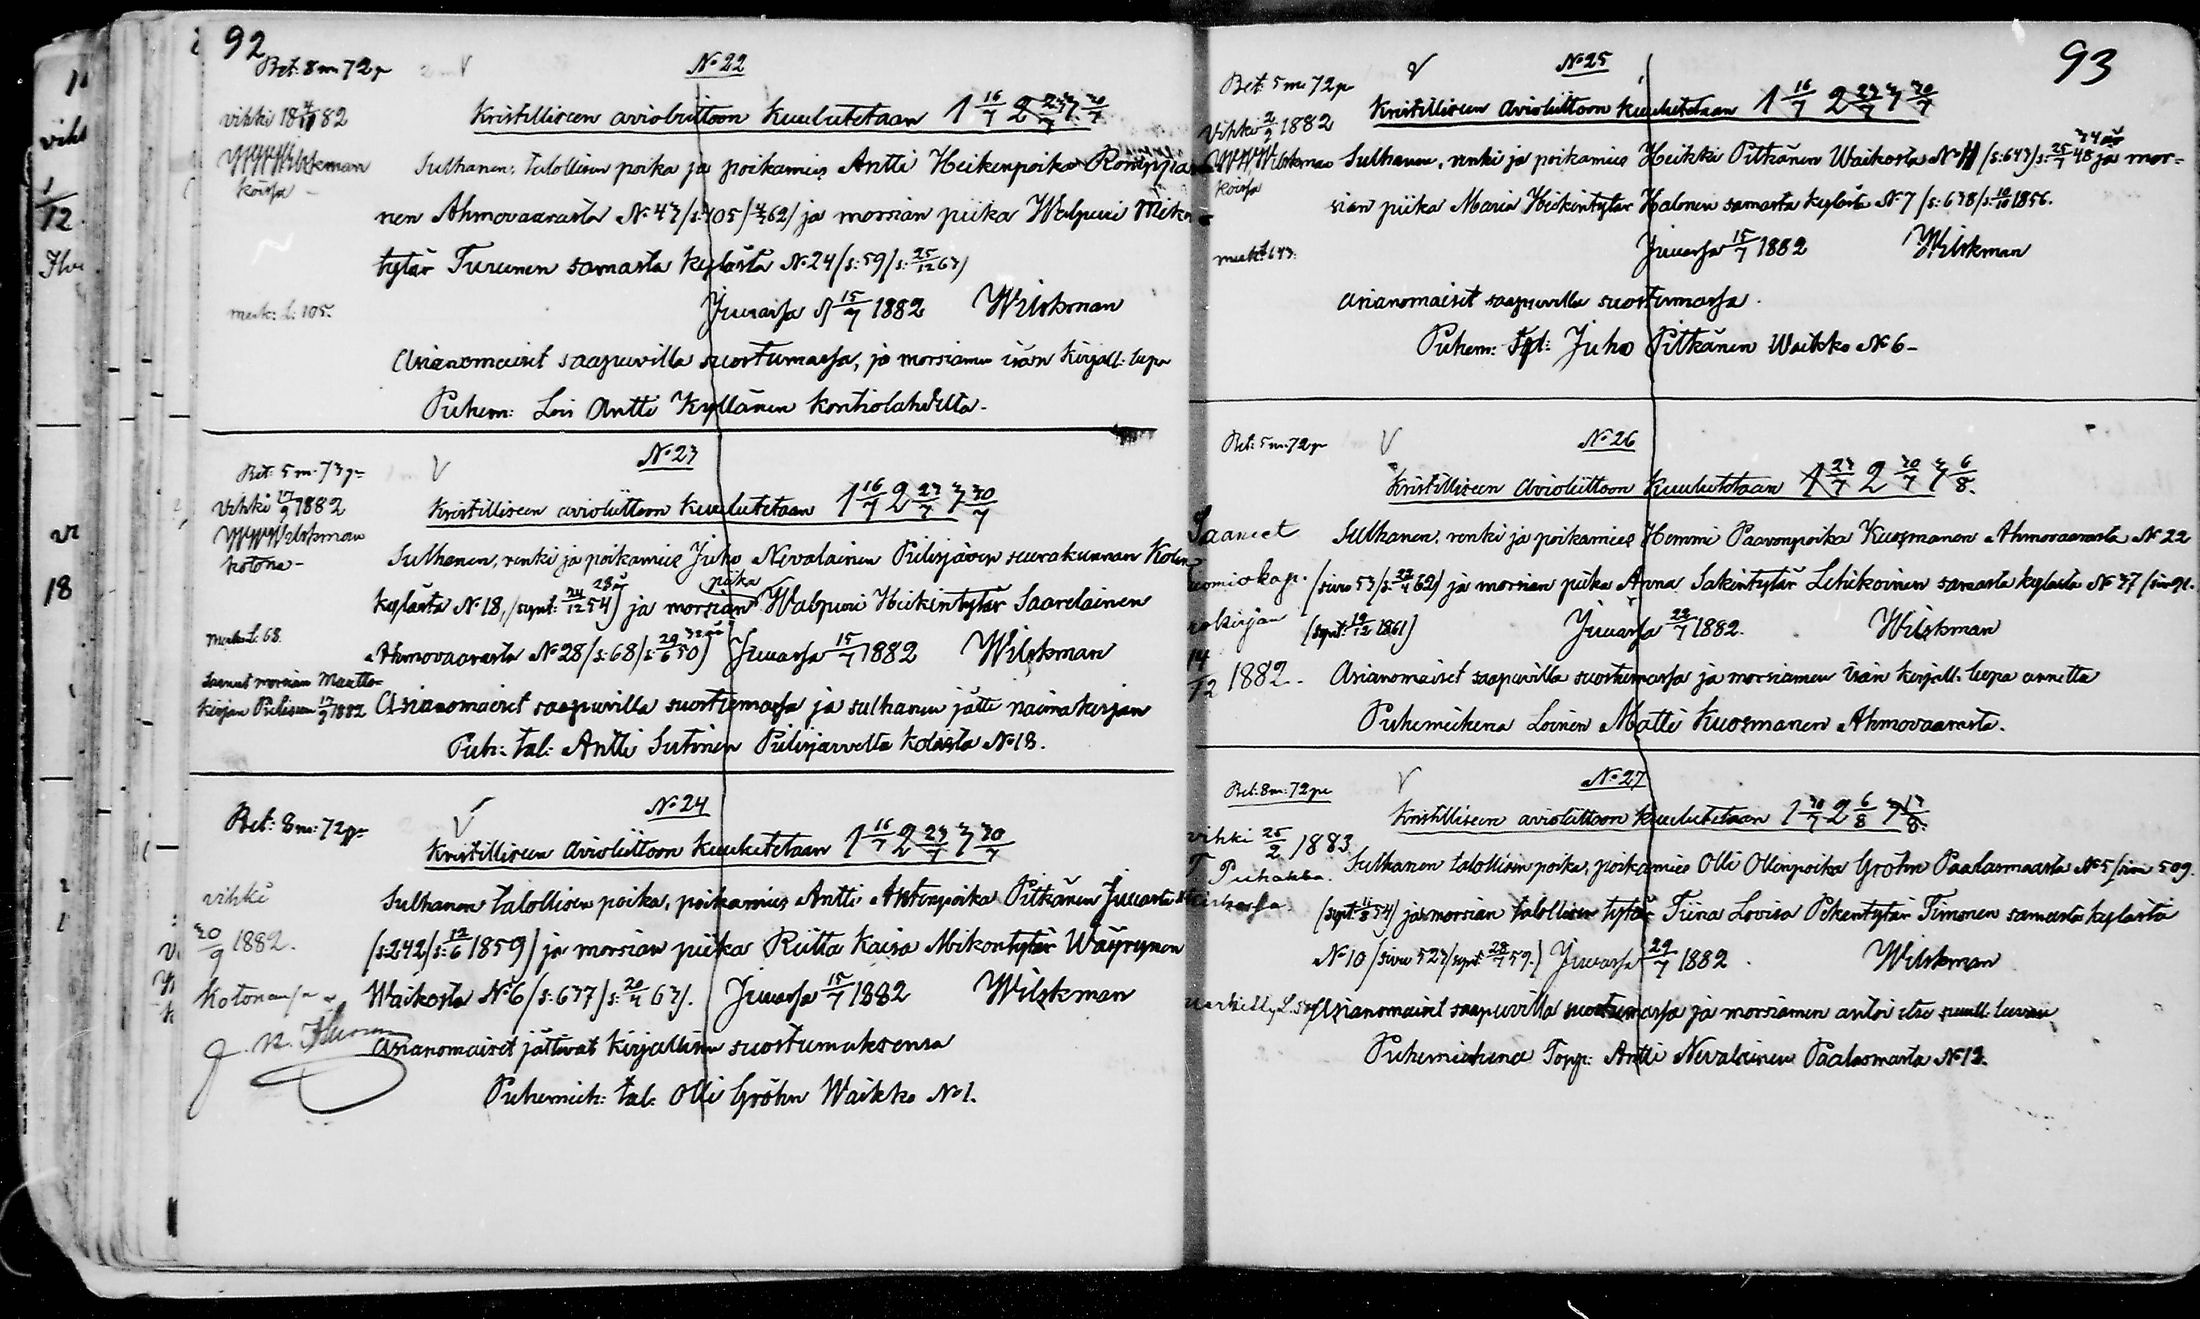 92
Bet. 8 m 72 p
№ 22
vihki 18 4/11 82
Kristilliseen avioliittoon Kuulutetaan 1 16/7 2 23/7 3 30/7
Wilskman
koissa
Sulhanen, talollisen poika ja poikamies Antti Heikinpoika
nen Ahmovaarasta № 43 /s: 105/ 62/ ja morsian piika Walpuri
tytär Turunen samasta kylästä № 24 /s: 59/ s: 25/12 63)
merk: L: 105.
Juuassa 15/7 1882 Wilskman
Asianomaiset saapuvilla suostumassa, ja morsiamen isän Kirjall: lupa
Puhem: Lois Antti Kyllänen Kontiolahdelta.
№ 23
Bet: 5 m. 73 p
Vihki 17/9 1882
Kristilliseen avioliittoon kuulutetaan 1 16/7 2 23/7 3 30/7
Wilskman
kotona
Sulhanen, renki ja poikamies Juho Nevalainen Pielisjärven seurakunnan
kylästä № 18, /synt: 24/12 54) ja morsian piika Walpuri Heikintytär Saarelainen
Merk. L. 68.
Ahmovaarasta № 28 /s: 68/ s: 29/6 50) Juuassa 15/7 1882 Wilskman
Saanut morsian Muutto-
kirjan Pielisiin 17/9 1882
Asianomaiset saapuvilla suostumassa ja sulhanen jätti naimakirjan
Puh: tal: Antti Sutinen Pielisjärveltä Kolista № 18.
№ 24
Bet: 8 m: 72 p
Kristilliseen avioliittoon kuulutetaan 1 16/7 2 23/7 3 30/7
vihki
30/9 1882.
Kotonansa
Sulhanen talollisen poika, poikamies Antti Antinpoika Pitkänen Juuasta
(s: 242/ s: 12/6 1859) ja morsian piika Riitta Kaisa Mikontytär Wäyrynen
Waikosta № 6 /s: 637/ s: 20/4 63/. Juuassa 15/7 1882 Wilskman
Asianomaiset jättivät kirjallisen suostumuksensa
Puhemieh: tal: Olli Gröhn Waikko № 1.
93
№ 25
Bet. 5 m 72 p
Kristilliseen avioliittoon kuulutetaan 1 16/7 2 23/7 3 30/7
Vihki 2/9 1882
Wilskman
koissa
Sulhanen, renki ja poikamies Heikki Pitkänen Waikosta № /s: 643/ s: 25/7 48 ja mor-
sian piika Maria Heikintytär Halonen samasta kylästä № 7 /s: 638/ s: 10/10 1856.
merk: L 643.
Juuassa 15/7 1882 Wilskman
Asianomaiset saapuvilla suostumassa.
Puhem: Juho Pitkänen Waikko № 6
№ 26
Bet: 5 m: 72 p
Kristilliseen avioliittoon kuulutetaan 1 23/7 2 30/7 3 6/8.
Saaneet
Sulhanen, renki ja poikamies Hemmi Paavonpoika Kuosmanen Ahmovaarasta № 22
(sivu 53/ s: 62) ja morsian piika Anna Sakintytär Lehikoinen samasta kylästä № 37
(synt: 19/12 1861) Juuassa 22/7 1882. Wilskman
14/12 1882.
Asianomaiset saapuvilla suostumassa ja morsiamen isän kirjall: lupa annettu
Puhemiehenä Loinen Matti Kuosmanen Ahmovaarasta.
№ 27
Bet: 8 m: 72 p
Kristilliseen avioliittoon kuulutetaan 1 30/7 2 6/8 3 13/8.
vihki 25/2 1883
Puhakka.
Sulhanen talollisen poika, poikamies Olli Ollinpoika Gröhn Paalasmaasta № 5 /sivu 509.
(synt: 54) ja morsian talollisen tytär Tiina Lovisa Pekantytär Timonen samasta kylästä
№ 10 /sivu 523/ synt: 28/7 59.) Juuassa 29/7 1882. Wilskman
Asianomaiset saapuvilla suostumassa ja morsiamen antoi itse suull. luvan
Puhemiehenä Torp: Antti Nevalainen Paalasmaasta № 12.